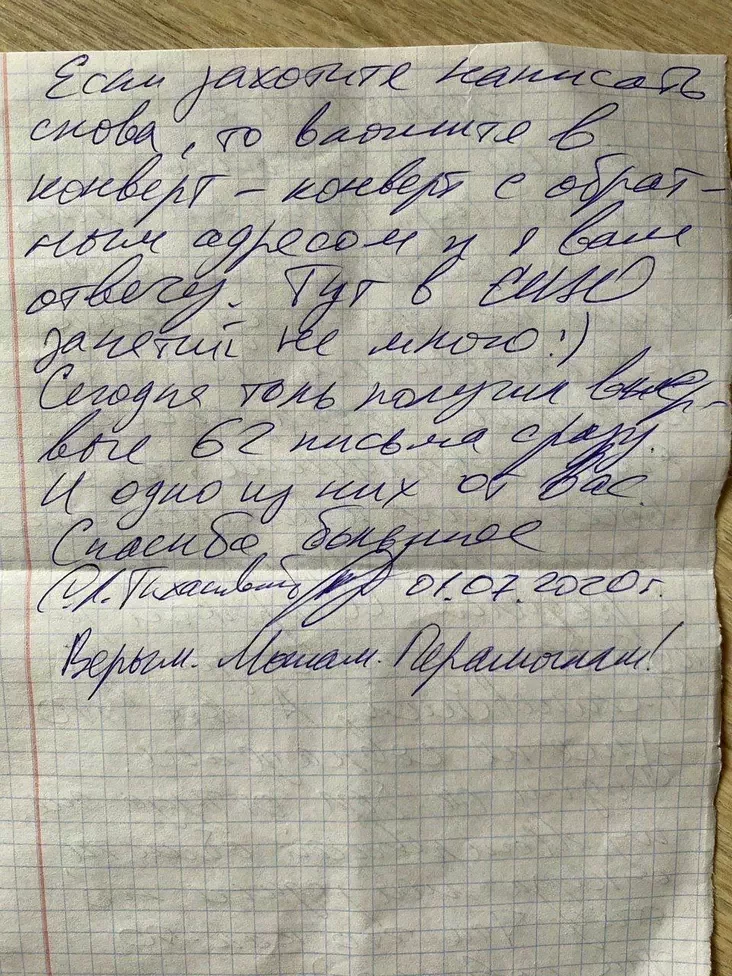 Если захотите написать
снова, то вложите в
конверт – конверт с обрат-
ным адресом и я вам
отвечу. Тут в СИЗО
занетий не много :)
Сегодня толь получил впер-
вые 62 письма сразу.
И одно из них от Вас.
Спасибо большое
01.07.2020г.
Верым. Можам. Пераможам!